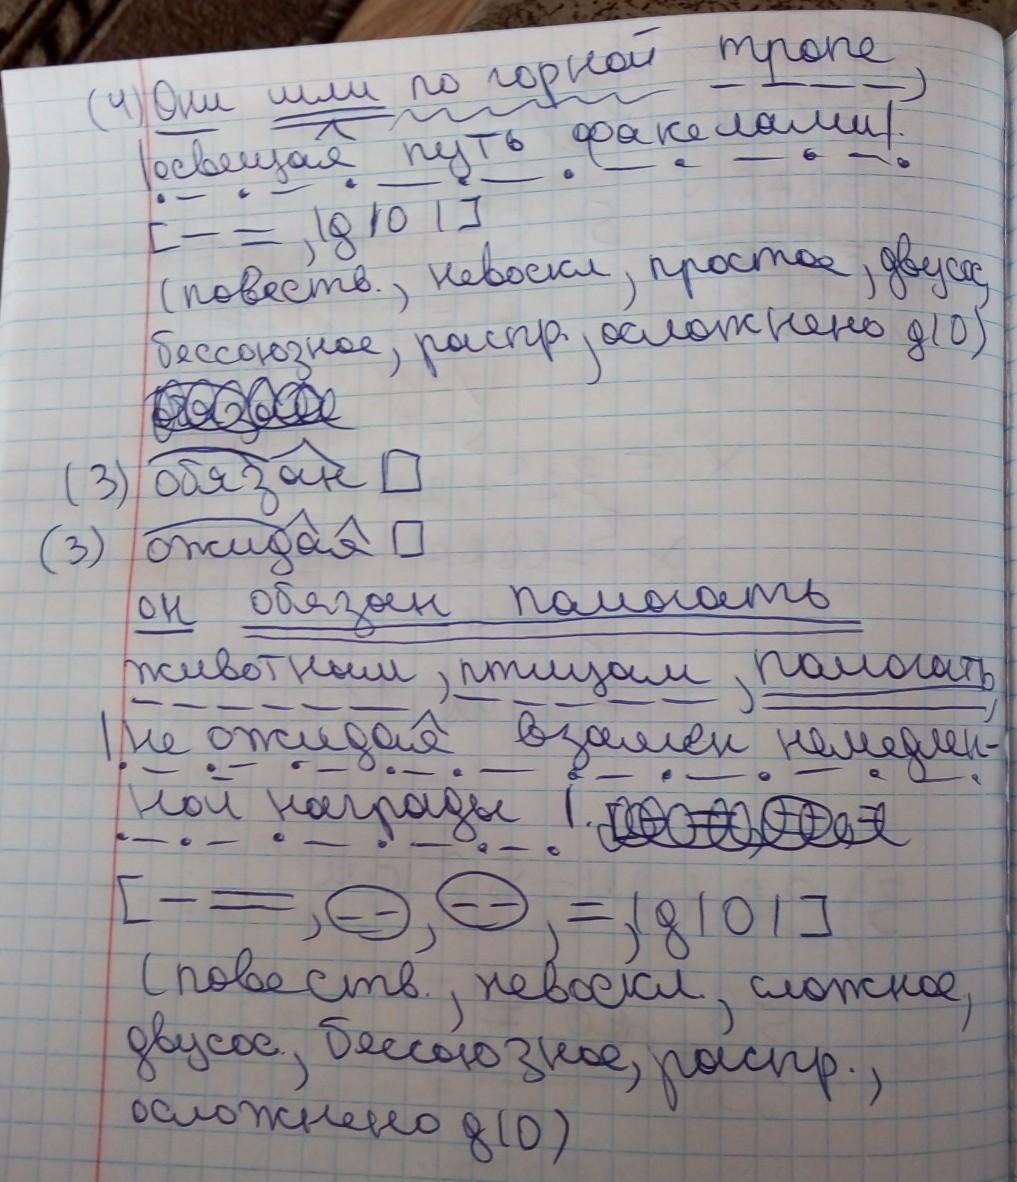 (4) Они шли по горной тропе,
|освещая путь факелами|.
[— =, |д/о|]
(повеств., невоскл, простое, двусос,
бессоюзное, распр., осложнено д/о)
(3) обязан □
(3) ожидая □
он обязан помогать
животным, птицам, помогать,
|не ожидая взамен немедлен-
ной награды|.
[— =, (--), (--), =, |д/о|]
(повеств., невоскл., сложное,
двусос., бессоюзное, распр.,
осложнено д/о)